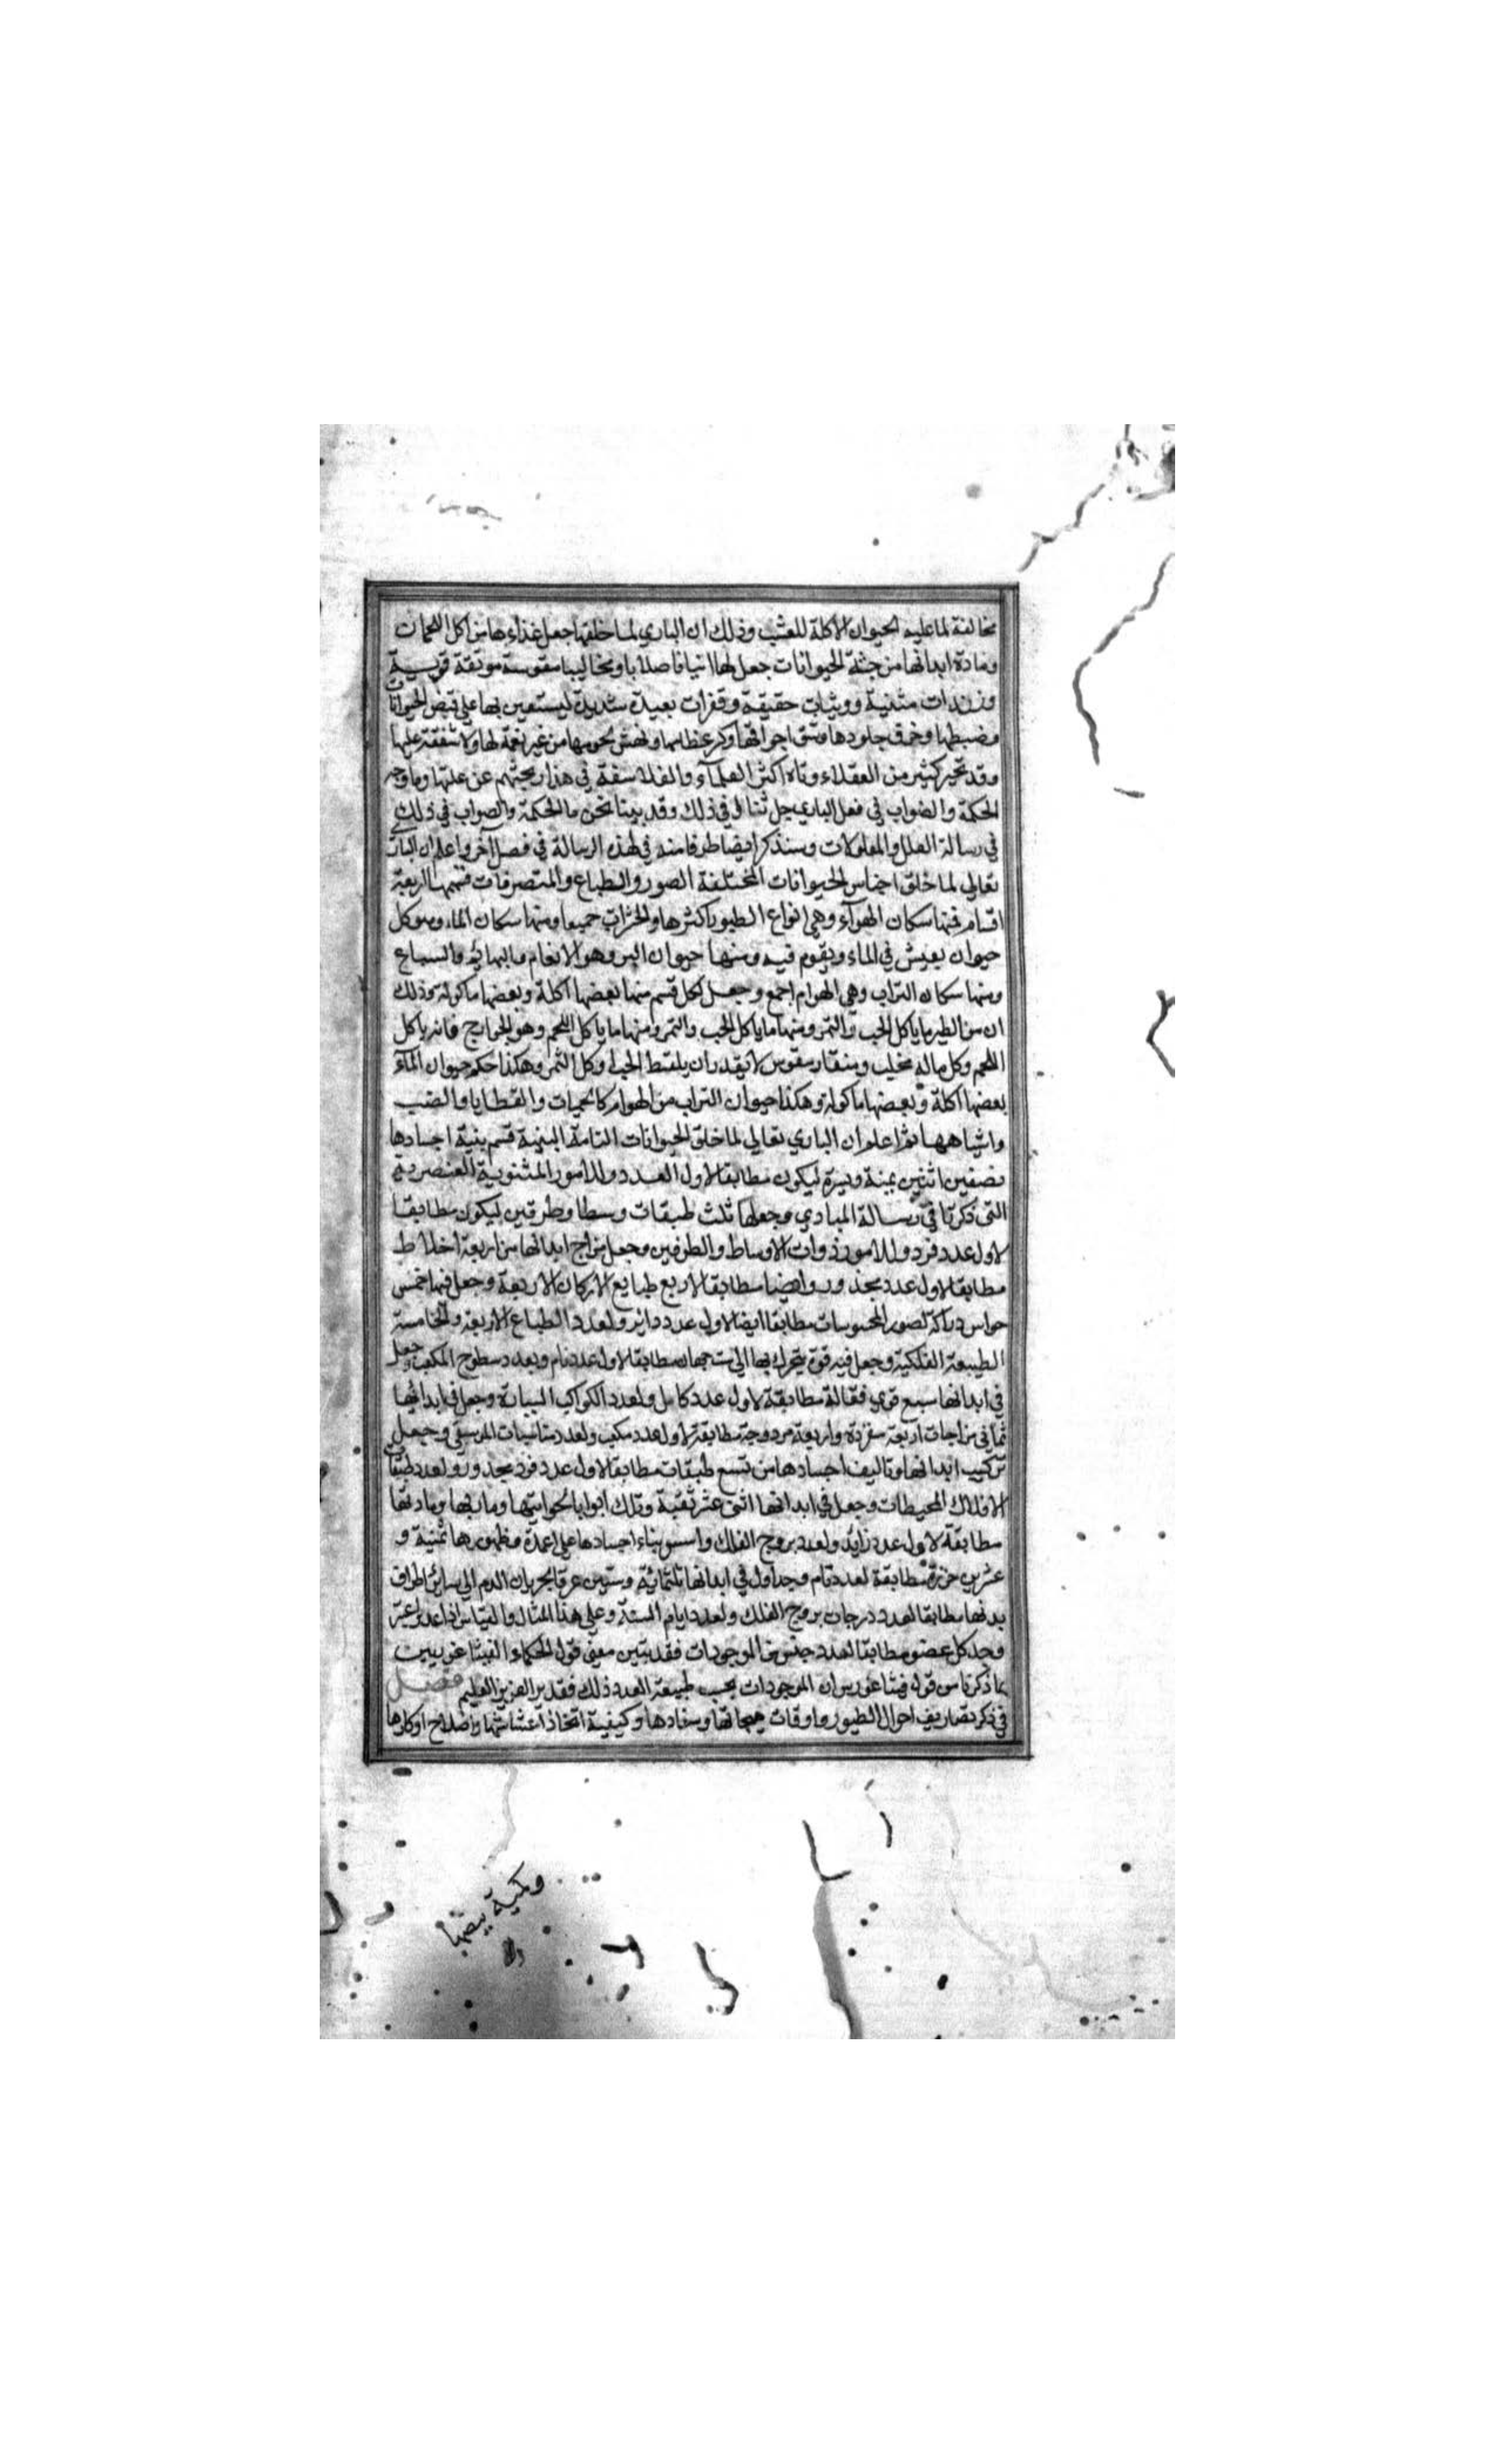 مخالفة لما عليه الحيوان الآكلة للعشب وذلك ان الباري لما خلقها جعل غذاءها من اكل اللحمان
ومادة ابدانها من جثة الحيوانات جعل لها انيابا صلابا ومخاليبا مقوسة موثقة قوية
وزندات متنية ووثبات حقيقية وقفزات بعيدة شديدة ليستعين بها على قبض الحيوانات
وضبطها وخرق جلودها وشق اجوافها وكسر عظامها ونهش لحومها من غير رحمة لها ولا شفقة عليها
وقد تحير كثير من العقلاء وتاه اكثر العلماء والفلاسفة في هذا وبحثهم عن علتها وما وجه
الحكمة والصواب في فعل الباري جل ثناؤه في ذلك وقد بينا نحن ما الحكمة والصواب في ذلك
في رسالة العلل والمعلولات وسنذكر ايضا طرفا منه في هذه الرسالة في فصل آخر واعلم ان الباري
تعالى لما خلق اجناس الحيوانات المختلفة الصور والطباع والمتصرفات قسمها اربعة
اقسام فمنها سكان الهوآء وهي انواع الطيور اكثرها والحشرات جميعا ومنها سكان الماء وهو كل
حيوان يعيش في الماء ويقوم فيه ومنها حيوان البر وهو الانعام والبهائم والسباع
ومنها سكان التراب وهي الهوام اجمع وجعل لكل قسم منها بعضها آكلة وبعضها ماكولة وذلك
ان من الطير ما ياكل الحب والثمر ومنها ما ياكل الحب والثمر ومنها ما ياكل اللحم وهو الجوارح فانه ياكل
اللحم وكل ماله مخليب ومنقار مقوس لا يقدر ان يلقط الحب وكل الثمر وهكذا حكم حيوان المآء
بعضها آكلة وبعضها ماكولة وهكذا حيوان التراب من الهوام كالحيات والقطايا والضب
واشباهها ثم اعلم ان الباري تعالى لما خلق الحيوانات التامة البنية قسم بنية اجسادها
نصفين اثنين يمنة ويسرة ليكون مطابقا لاول العدد وللامور المثنوية العنصرية
التي ذكرنا في رسالة المبادي وجعلها ثلث طبقات وسطا وطرفين ليكون مطابقا
لاول عدد فرد وللامور ذوات الاوساط والطرفين وجعل مزاج ابدانها من اربعة اخلاط
مطابقا لاول عدد مجذور وايضا مطابقا لاربع طبايع الاركان الاربعة وجعل فيها خمس
حواس دراكة لصور المحسوسات مطابقا ايضا لاول عدد دائر ولعدد الطباع الاربعة والخامسة
الطبيعة الفلكية وجعل فيه قوة يتحرك بها الى ست جهات مطابقا لاول عدد تام وبعدد سطوح المكعب وجعل
في ابدانها سبع قوي فعالة مطابقة لاول عدد كامل ولعدد الكواكب السيارة وجعل في ابدانها
ثماني مزاجات اربعة مفردة واربعة مزدوجة مطابقة لاول عدد مكعب ولعدد مناسبات الموسيقي وجعل
تركيب ابدانها وتاليف اجسادها من تسع طبقات مطابقا لاول عدد فرد مجذور ولعدد طبقات
الافلاك المحيطات وجعل في ابدانها اثنى عشر ثقبة وتلك ابوابا لحواسها ومآربها ومادتها
مطابقة لاول عدد زايد ولعدد بروج الفلك واسس بناء اجسادها على اعمدة وظهورها ثمنية و
عشرين خرزة مطابقة لعدد تام وجداول في ابدانها ثلثمائة وستين عرقا لجريان الدم الى سائر اطراف
بدنها مطابقا لعدد درجات بروج الفلك ولعدد ايام السنة وعلى هذا المثال والقياس اذا عدد واعتبر
وجد كل عضو مطابقا لعدد جنس من الموجودات فقد تبين معنى قول الحكماء الفيثاغوريين
بما ذكرنا من قول فيثاغورس ان الموجودات بحسب طبيعة العدد ذلك فقدير العزيز العليم فصل
في ذكر تصاريف احوال الطيور واوقات هيجانها وسفادها وكيفية اتخاذ اعشاشها واصلاح اوكارها
وكمية بيضها